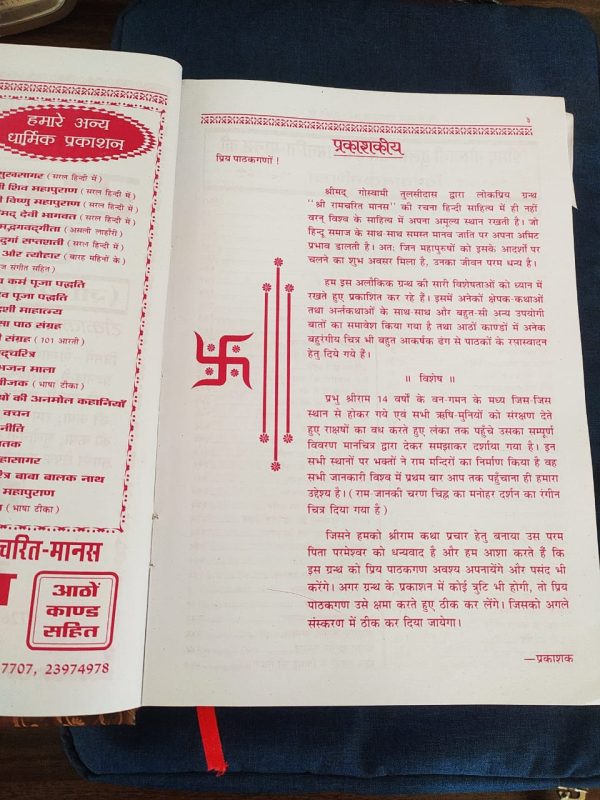 हमारे अन्य
धार्मिक प्रकाशन
सुखसागर (सरल हिन्दी में)
शिव महापुराण (सरल हिन्दी में)
विष्णु महापुराण (सरल हिन्दी में)
देवी भागवत (सरल हिन्दी में)
(असली लाहौरी)
दुर्गा सप्तशती (सरल हिन्दी में)
और त्यौहार (बारह महिनों के)
संगीत सहित)
कर्म पूजा पद्धति
पूजा पद्धति
माहात्म्य
पाठ संग्रह
संग्रह (101 आरती)
भजन माला
बीजक (भाषा टीका)
की अनमोल कहानियाँ
वचन
बाबा बालक नाथ
महापुराण
(भाषा टीका)
चरित-मानस
आठों
काण्ड
सहित
7707, 23974978
३
प्रकाशकीय
प्रिय पाठकगणों !
श्रीमद् गोस्वामी तुलसीदास द्वारा लोकप्रिय ग्रन्थ
‘‘श्री रामचरित मानस’’ की रचना हिन्दी साहित्य में ही नहीं
वरन् विश्व के साहित्य में अपना अमूल्य स्थान रखती है। जो
हिन्दू समाज के साथ साथ समस्त मानव जाति पर अपना अमिट
प्रभाव डालती है। अत: जिन महापुरुषों को इसके आदर्शों पर
चलने का शुभ अवसर मिला है, उनका जीवन परम धन्य है।
हम इस अलौकिक ग्रन्थ की सारी विशेषताओं को ध्यान में
रखते हुए प्रकाशित कर रहे हैं। इसमें अनेकों क्षेपक-कथाओं
तथा अर्न्तकथाओं के साथ-साथ और बहुत-सी अन्य उपयोगी
बातों का समावेश किया गया है तथा आठों काण्डों में अनेक
बहुरंगीय चित्र भी बहुत आकर्षक ढंग से पाठकों के रसास्वादन
हेतु दिये गये हैं।
॥ विशेष ॥
प्रभु श्रीराम 14 वर्षों के वन-गमन के मध्य जिस-जिस
स्थान से होकर गये एवं सभी ऋषि-मुनियों को संरक्षण देते
हुए राक्षसों का वध करते हुए लंका तक पहुँचे उसका सम्पूर्ण
विवरण मानचित्र द्वारा देकर समझाकर दर्शाया गया है। इन
सभी स्थानों पर भक्तों ने राम मन्दिरों का निर्माण किया है वह
सभी जानकारी विश्व में प्रथम बार आप तक पहुँचाना ही हमारा
उद्देश्य है। ( राम जानकी चरण चिह्न का मनोहर दर्शन का रंगीन
चित्र दिया गया है )
जिसने हमको श्रीराम कथा प्रचार हेतु बनाया उस परम
पिता परमेश्वर को धन्यवाद है और हम आशा करते हैं कि
इस ग्रन्थ को प्रिय पाठकगण अवश्य अपनायेंगे और पसंद भी
करेंगे। अगर ग्रन्थ के प्रकाशन में कोई त्रुटि भी होगी, तो प्रिय
पाठकगण उसे क्षमा करते हुए ठीक कर लेंगे। जिसको अगले
संस्करण में ठीक कर दिया जायेगा।
—प्रकाशक